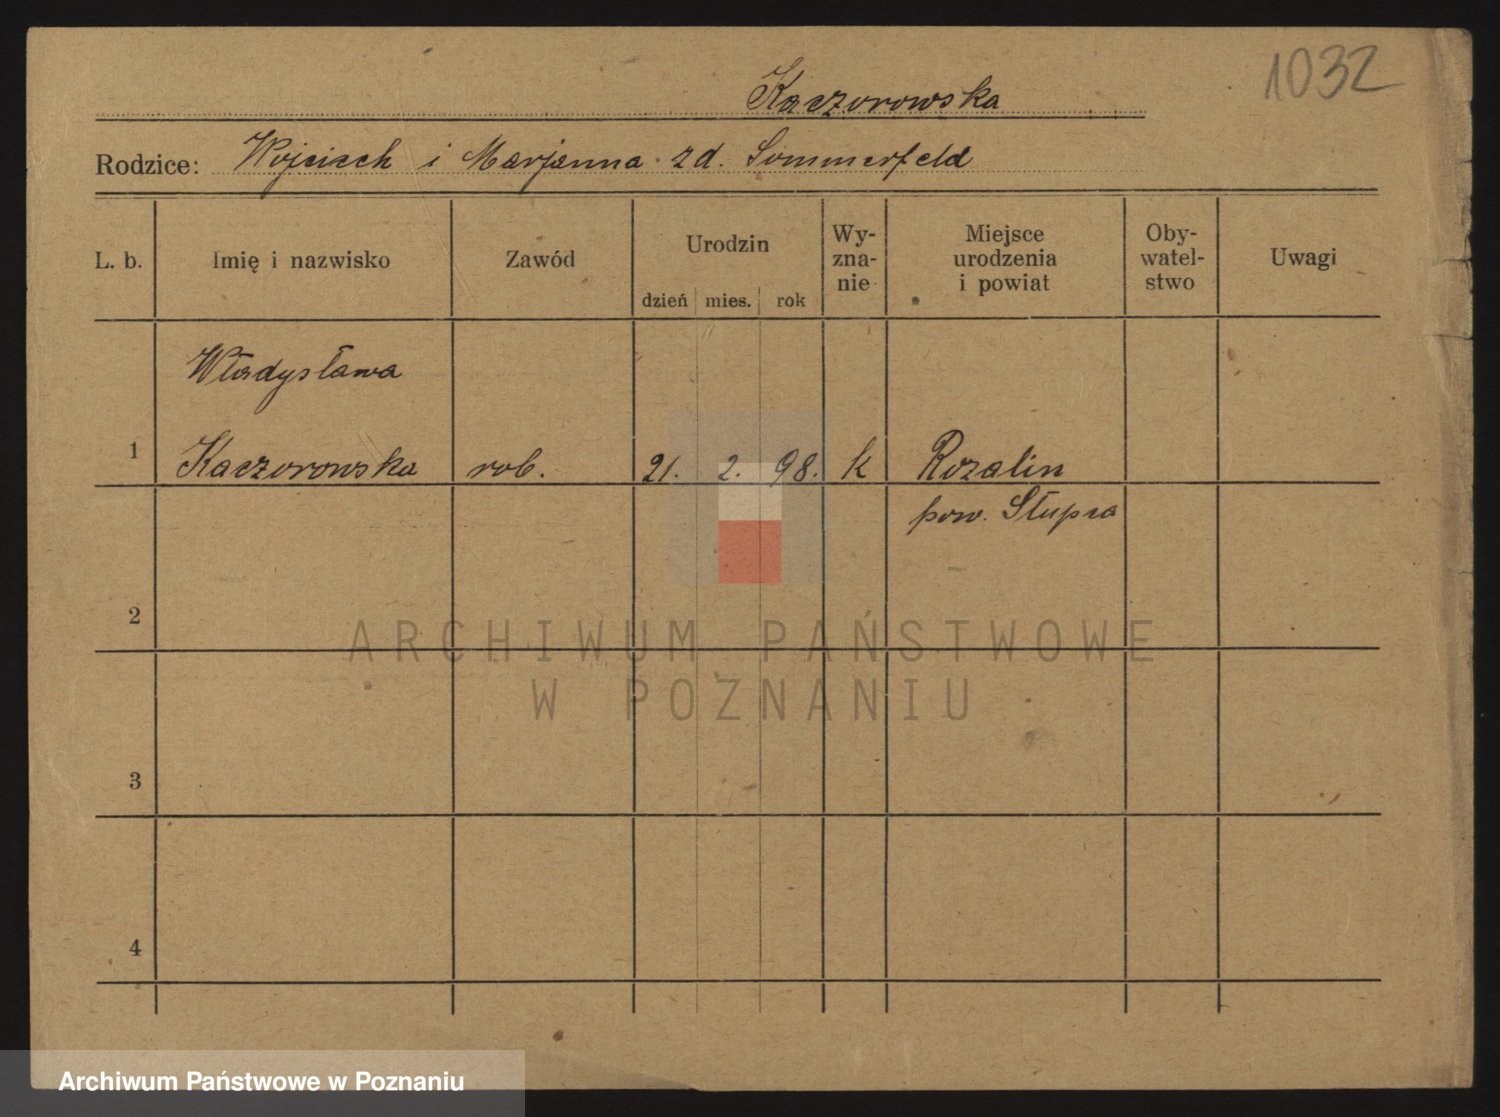 1032
Kaczorowska
Rodzice: Wojciech i Marjanna zd. Sommerfeld
L. b. Imię i nazwisko Zawód Urodzin dzień mies. rok Wy-
zna-
nie Miejsce
urodzenia
i powiat Oby-
watel-
stwo Uwagi
Władysława
1 Kaczorowska rob. 21. 2. 98. k Rozalin
pow. Słupca
2
ARCHIWUM PAŃSTWOWE
W POZNANIU
3
4
Archiwum Państwowe w Poznaniu